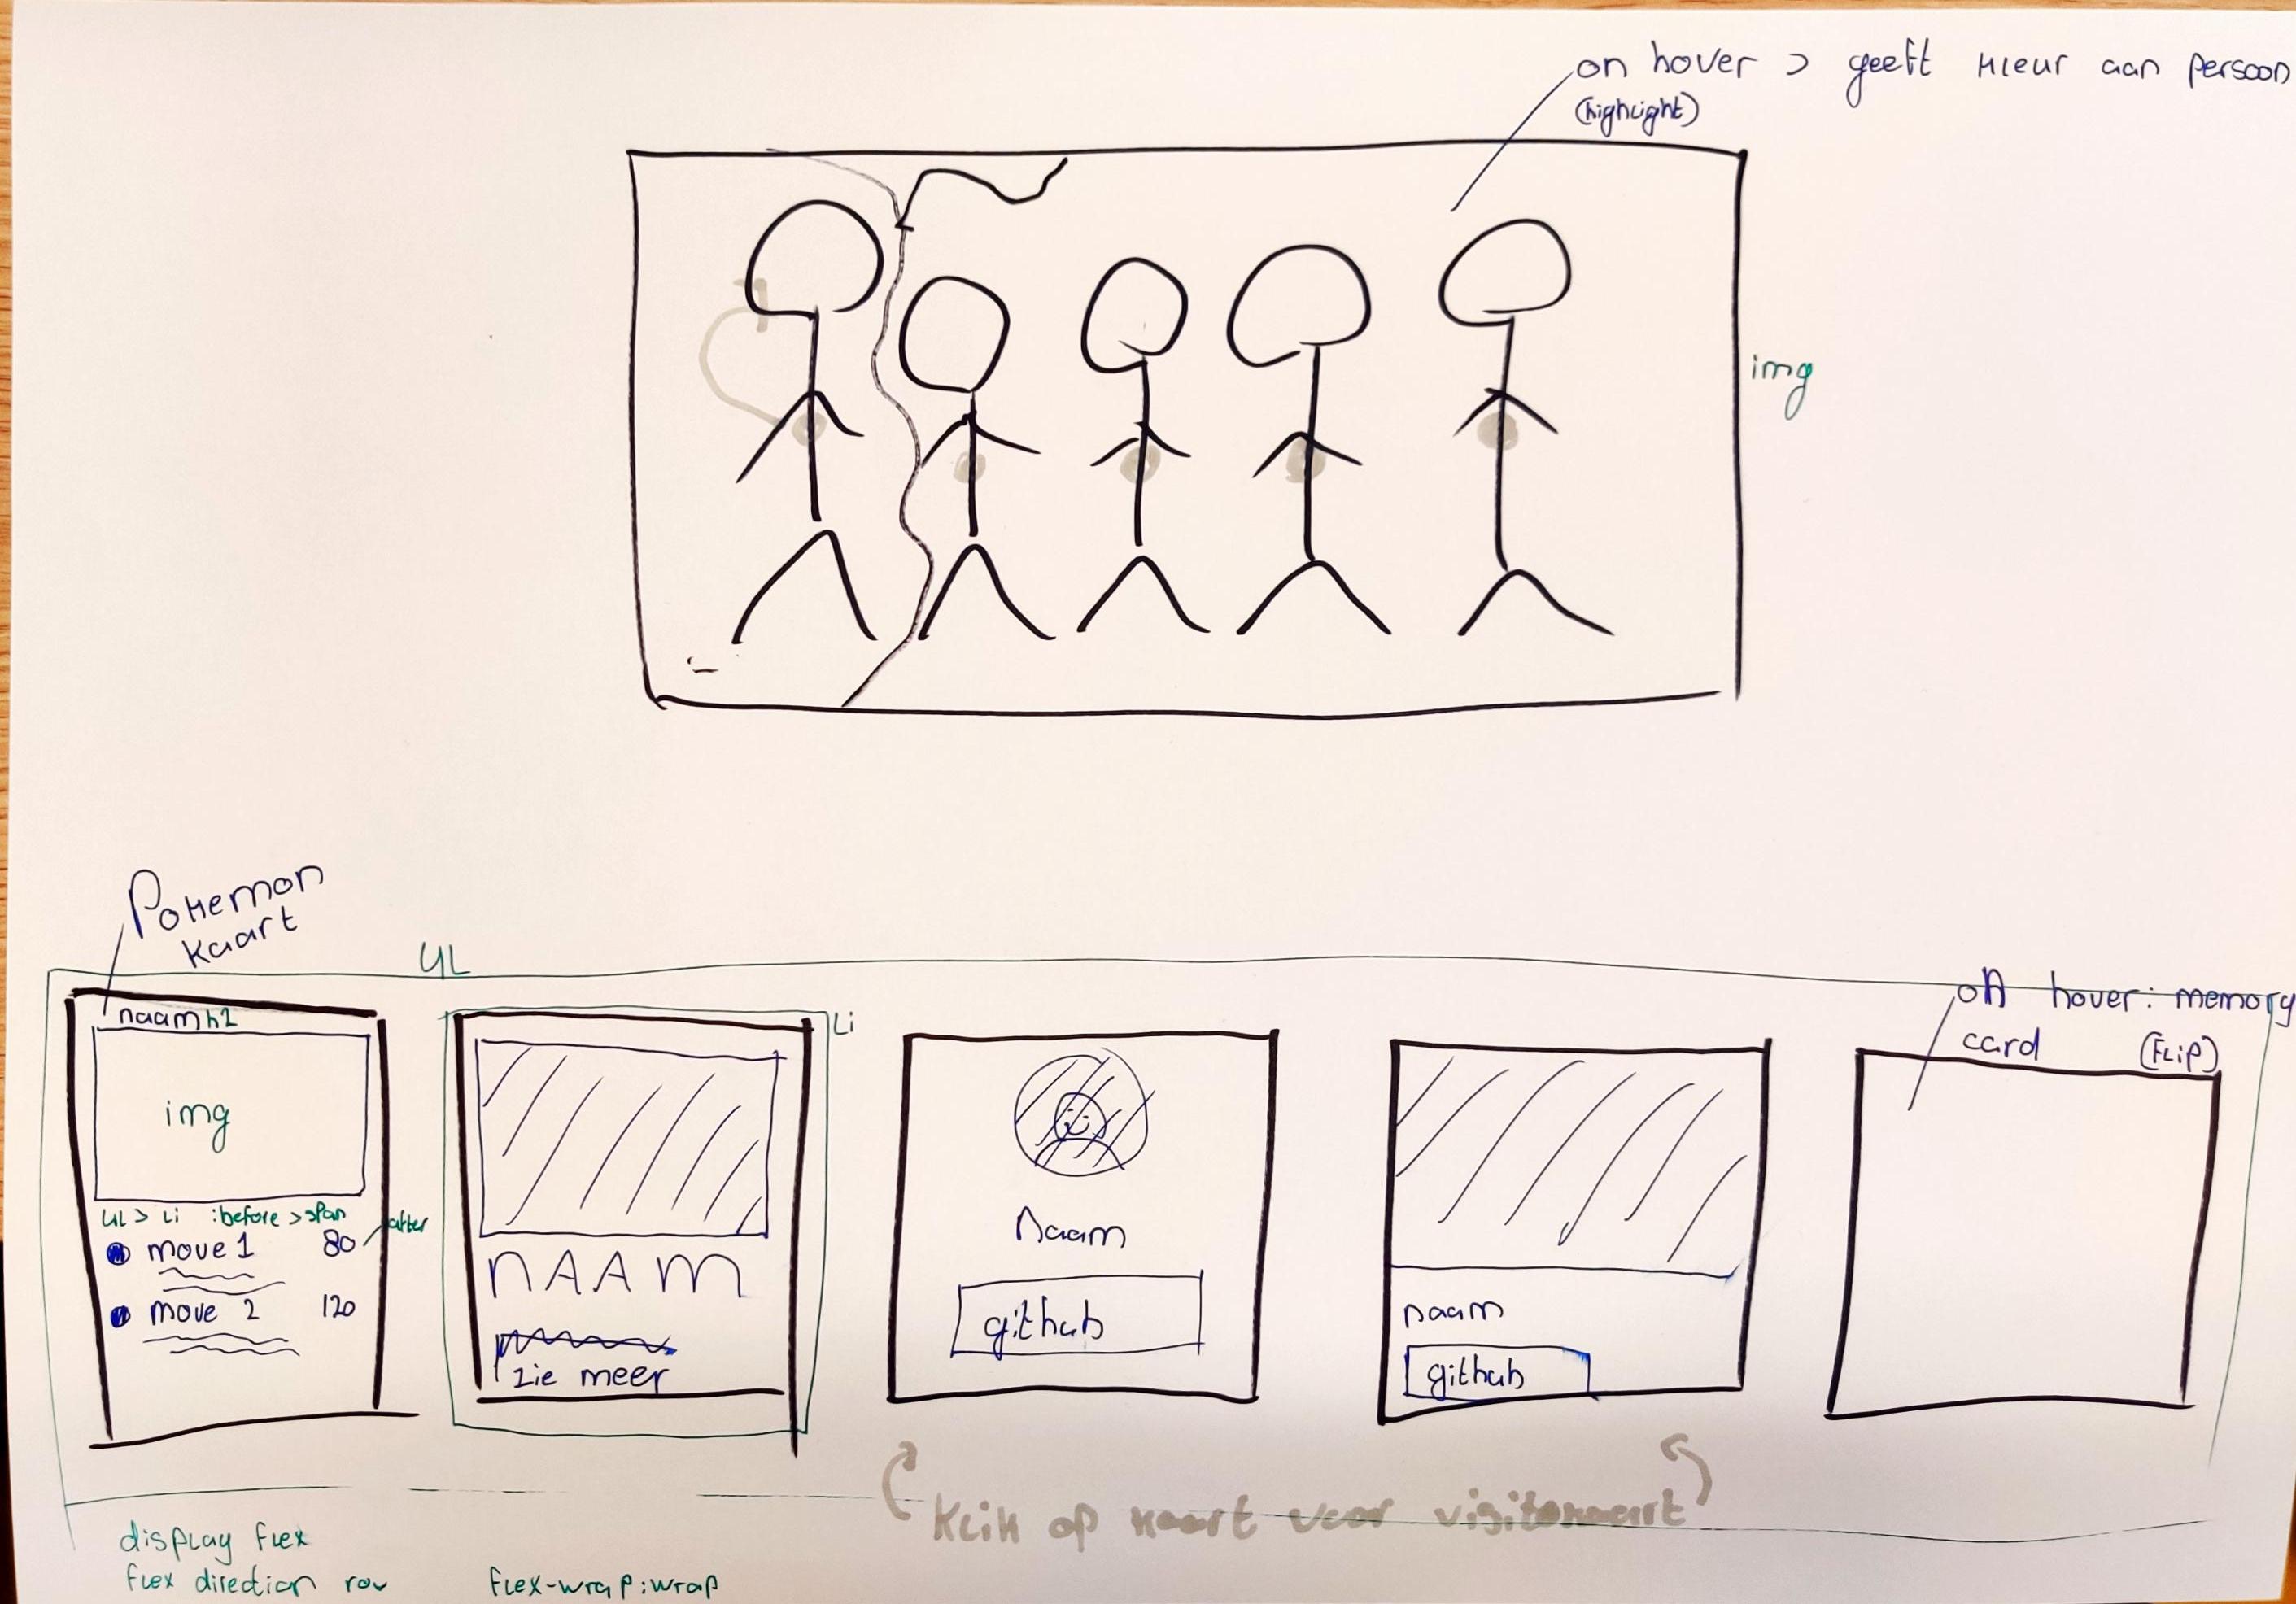 on hover > geeft kleur aan persoon
(highlight)
img
Pokemon
kaart
UL
on hover: memory
card (Flip)
naam h2
img
UL > Li :before > span
after
move 1 80
move 2 120
Li
NAAM
zie meer
Naam
github
naam
github
Klik op kaart voor visitekaart
display flex
flex direction row flex-wrap: wrap